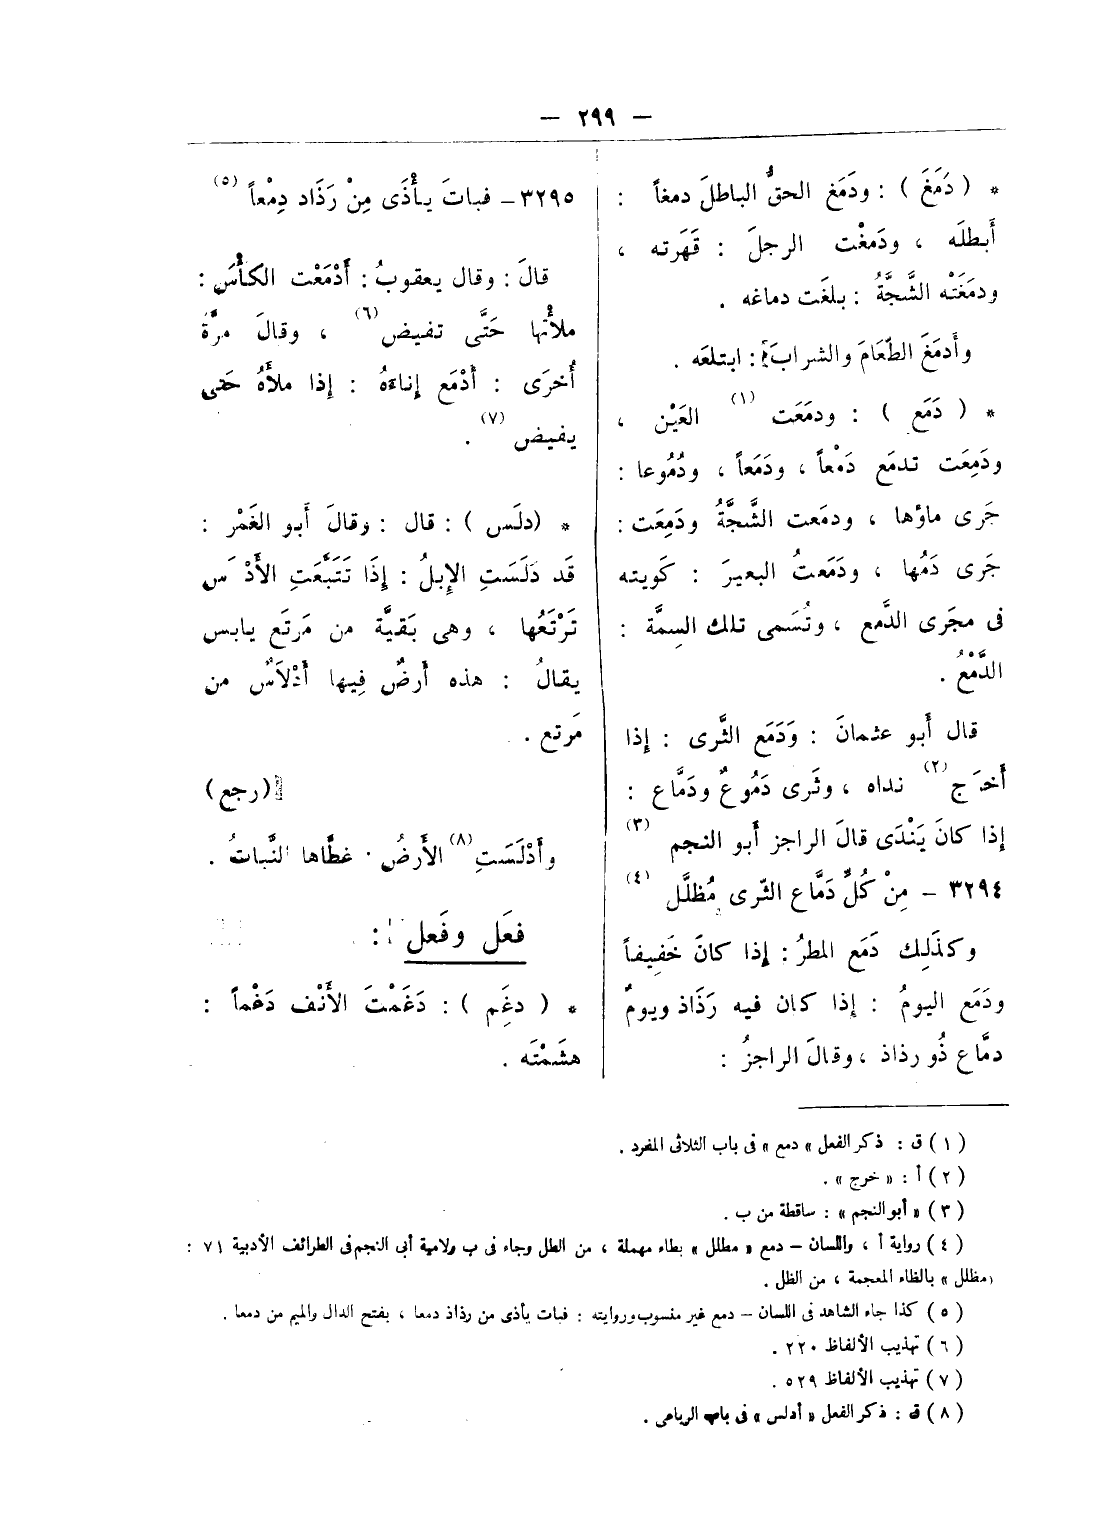 — ٢٩٩ —
* ( دَمَغَ ) : ودَمَغ الحقُّ الباطلَ دمغاً :
أَبطلَه ، ودَمغْت الرجلَ : قَهَرته ،
ودمَغَتْه الشَّجَّةُ : بلغَت دماغه .
وأَدمَغَ الطَّعَامَ والشرابَ : ابتلعَه .
* ( دَمَع ) : ودمَعَت (١) العَيْن ،
ودَمِعَت تدمَع دَمْعاً ، ودَمَعاً ، ودُمُوعا :
جَرى ماؤها ، ودمَعت الشَّجَّةُ ودَمِعَت :
جَرى دَمُها ، ودَمَعتُ البعيرَ : كَويته
فى مجَرى الدَّمع ، وتُسَمى تلك السِمَّة :
الدَّمْعُ .
قال أَبو عثمانَ : وَدَمَع الثَّرى : إذا
أَخرَج (٢) نداه ، وثَرى دَمُوعٌ ودَمَّاع :
إذا كانَ يَنْدَى قالَ الراجز أَبو النجم (٣)
٣٢٩٤ – مِنْ كُلِّ دَمَّاع الثّرى مُظلَّل (٤)
وكذَلِك دَمَع المطرُ : إذا كانَ خَفِيفاً
ودَمَع اليومُ : إذا كان فيه رَذَاذ ويومٌ
دمَّاع ذُو رذاذ ، وقالَ الراجزُ :
٣٢٩٥ – فباتَ يأْذَى مِنْ رَذَاد دِمْعاً (٥)
قالَ : وقال يعقوبُ : أَدْمَعْت الكأْسَ :
ملأْتها حَتَّى تفيض (٦) ، وقالَ مرَّة
أُخرَى : أَدْمَع إناءَهُ : إذا ملأَهُ حَتى
يفيض (٧) .
* (دلَس ) : قال : وقالَ أَبو الغَمْر :
قَد دَلَسَتِ الإبلُ : إذَا تَتَبَّعَتِ الأَدْلَاس
تَرْتَعُها ، وهى بَقيَّة من مَرتَع يابس
يقالُ : هذه أَرضٌ فِيها أَدْلاَسٌ من
مَرتع .
(رجع)
وأَدْلَسَتِ (٨) الأَرضُ : غطَّاها النَّباتُ .
فعَل وفَعل :
* ( دغَم ) : دَغَمْتَ الأَنْف دَغْماً :
هشَمْتَه .
( ١ ) ق : ذكر الفعل « دمع » فى باب الثلاثى المفرد .
( ٢ ) أ : « خرج » .
( ٣ ) « أبو النجم » : ساقطة من ب .
( ٤ ) رواية أ ، واللسان – دمع « مطلل » بطاء مهملة ، من الطل وجاء فى ب ولامية أبى النجم فى الطرائف الأدبية ٧١ :
« مظلل » بالظاء المعجمة ، من الظل .
( ٥ ) كذا جاء الشاهد فى اللسان – دمع غير منسوب وروايته : فبات يأذى من رذاذ دمعا ، بفتح الدال والميم من دمعا .
( ٦ ) تهذيب الألفاظ ٢٢٠ .
( ٧ ) تهذيب الألفاظ ٥٢٩ .
( ٨ ) ق : ذكر الفعل « أدلس » فى باب الرباعى .